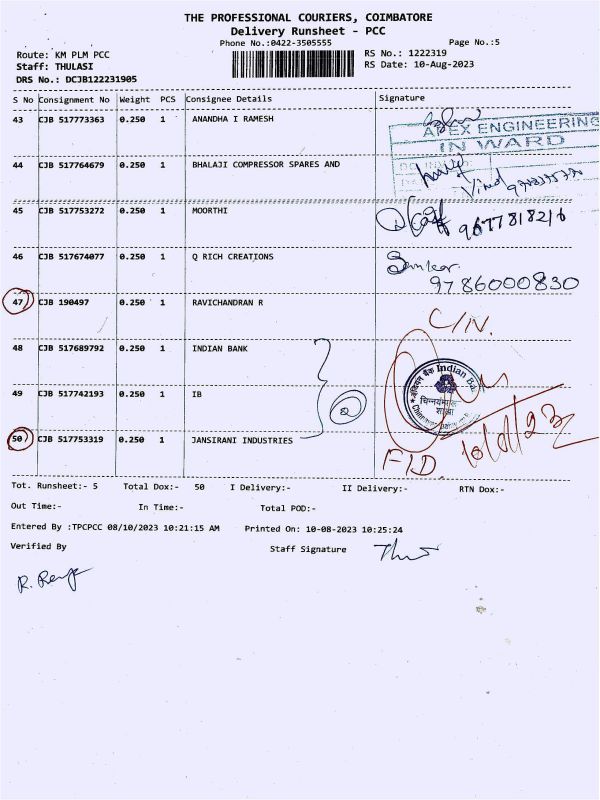 THE PROFESSIONAL COURIERS, COIMBATORE
Delivery Runsheet - PCC
Phone No.:0422-3505555 Page No.:5
Route: KM PLM PCC RS No.: 1222319
Staff: THULASI RS Date: 10-Aug-2023
DRS No.: DCJB122231905
S No Consignment No Weight PCS Consignee Details Signature
43 CJB 517773363 0.250 1 ANANDHA I RAMESH
APEX ENGINEERING
IN WARD
44 CJB 517764679 0.250 1 BHALAJI COMPRESSOR SPARES AND
45 CJB 517753272 0.250 1 MOORTHI 9677818216
46 CJB 517674077 0.250 1 Q RICH CREATIONS Sankar
9786000830
47 CJB 190497 0.250 1 RAVICHANDRAN R C/N.
48 CJB 517689792 0.250 1 INDIAN BANK
Indian Ba
शाखा
49 CJB 517742193 0.250 1 IB 2
50 CJB 517753319 0.250 1 JANSIRANI INDUSTRIES
F/D.
Tot. Runsheet:- 5 Total Dox:- 50 I Delivery:- II Delivery:- RTN Dox:-
Out Time:- In Time:- Total POD:-
Entered By :TPCPCC 08/10/2023 10:21:15 AM Printed On: 10-08-2023 10:25:24
Verified By Staff Signature